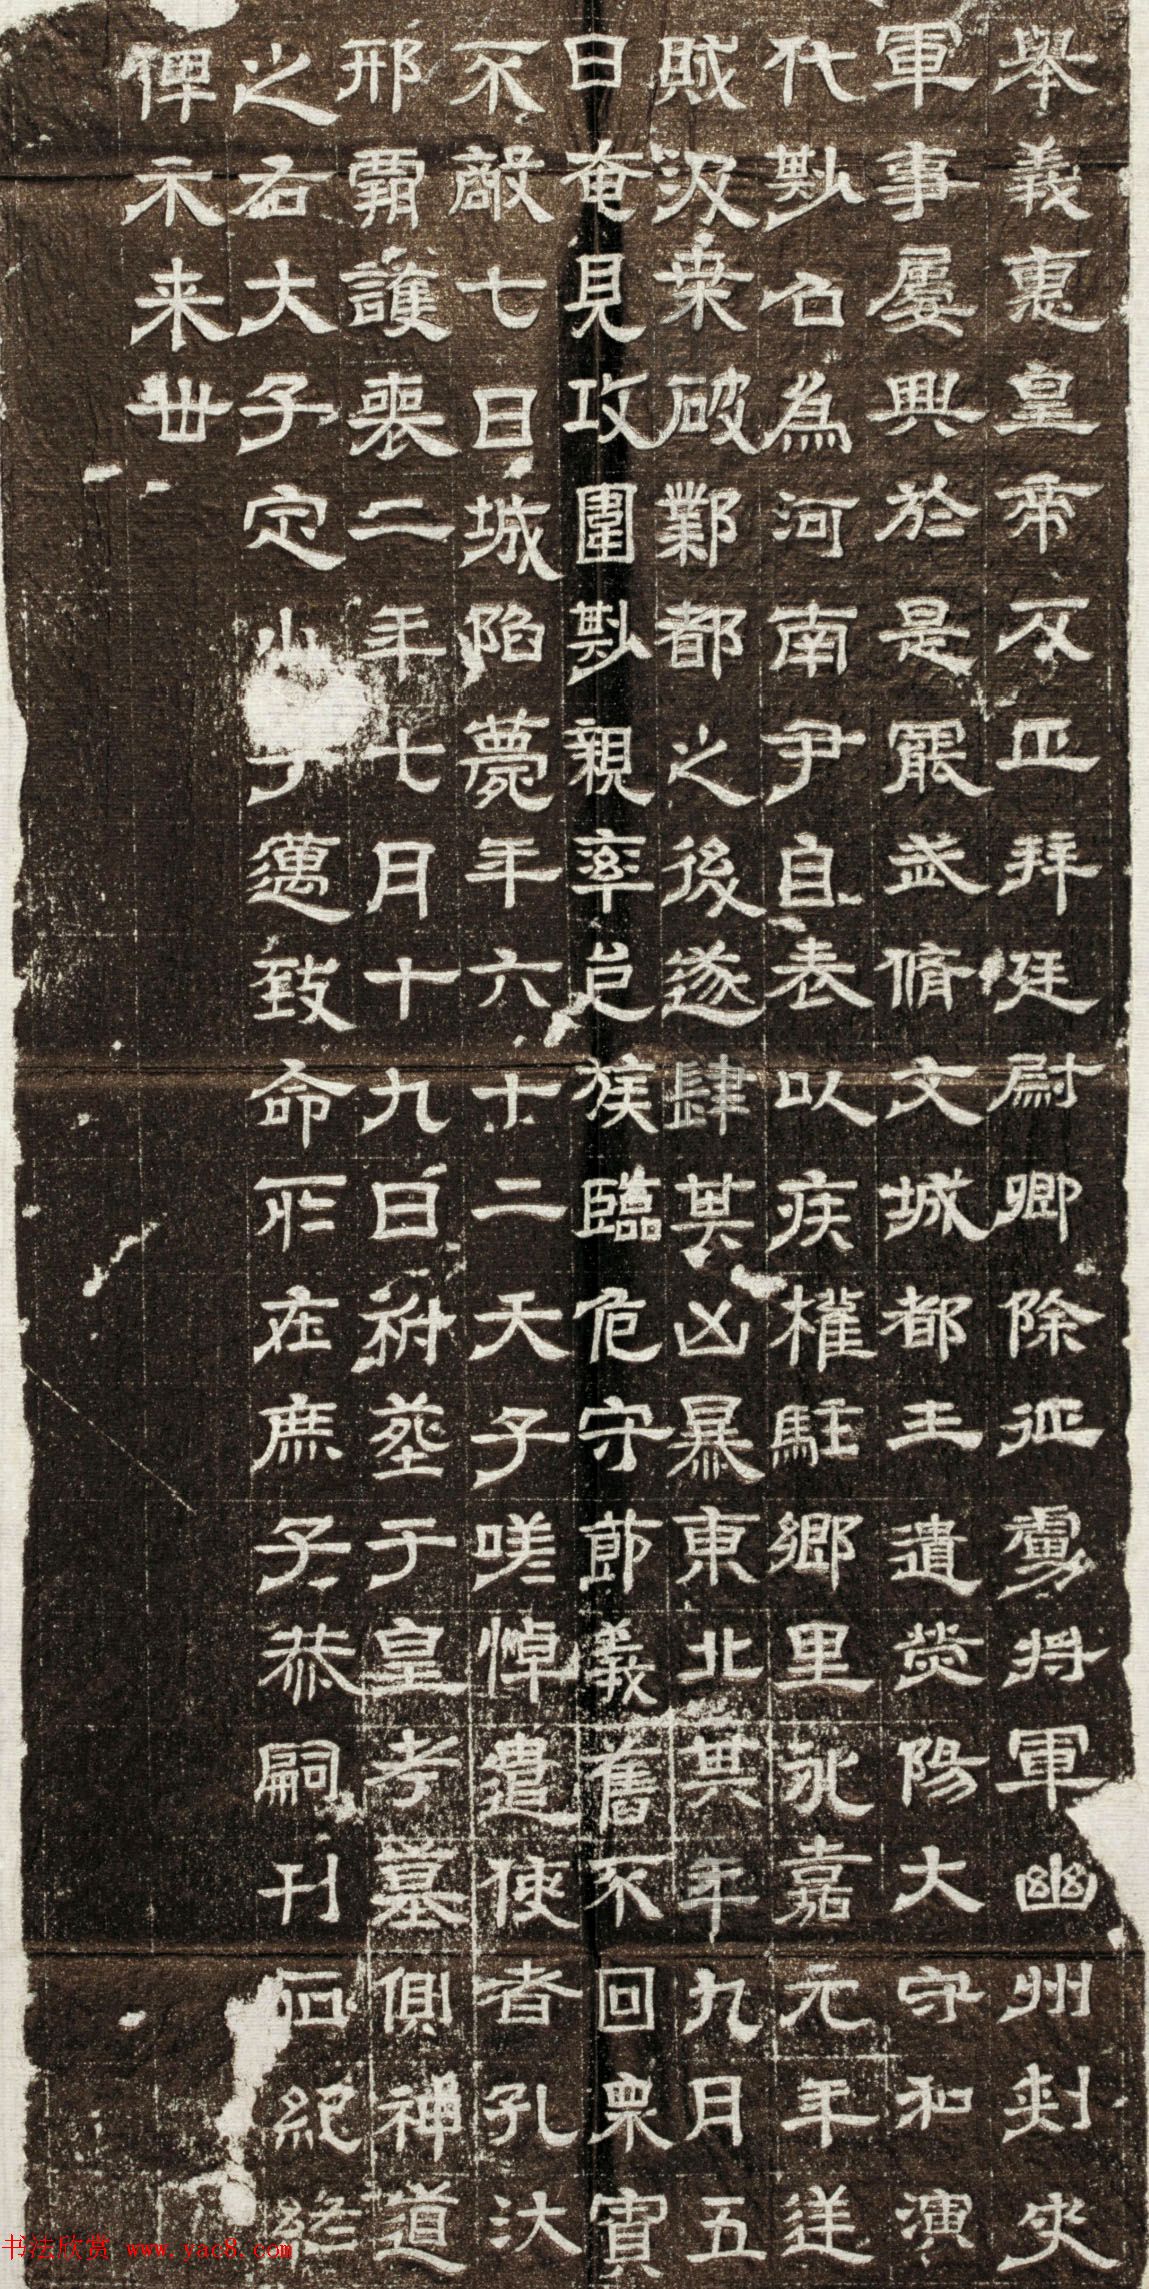 舉義惠皇帝反正拜廷尉卿除征虜將軍幽州刺史
軍事屢興於是罷武脩文城都王遣熒陽大守和演
代尠召為河南尹自表以疾權駐鄉里永嘉元年逆
賊汲桒破鄴都之後遂肆其凶暴東北其年九月五
日奄見攻圍尠親率邑族臨危守節義舊不回眾寡
不敵七日城陷薨年六十二天子嗟悼遣使者孔汏
邢霸護喪二年七月十九日祔塟于皇考墓側神道
之右大子定小子邁致命所在庶子恭嗣刊石紀終
俾示来世
书法欣赏 www.yac8.com